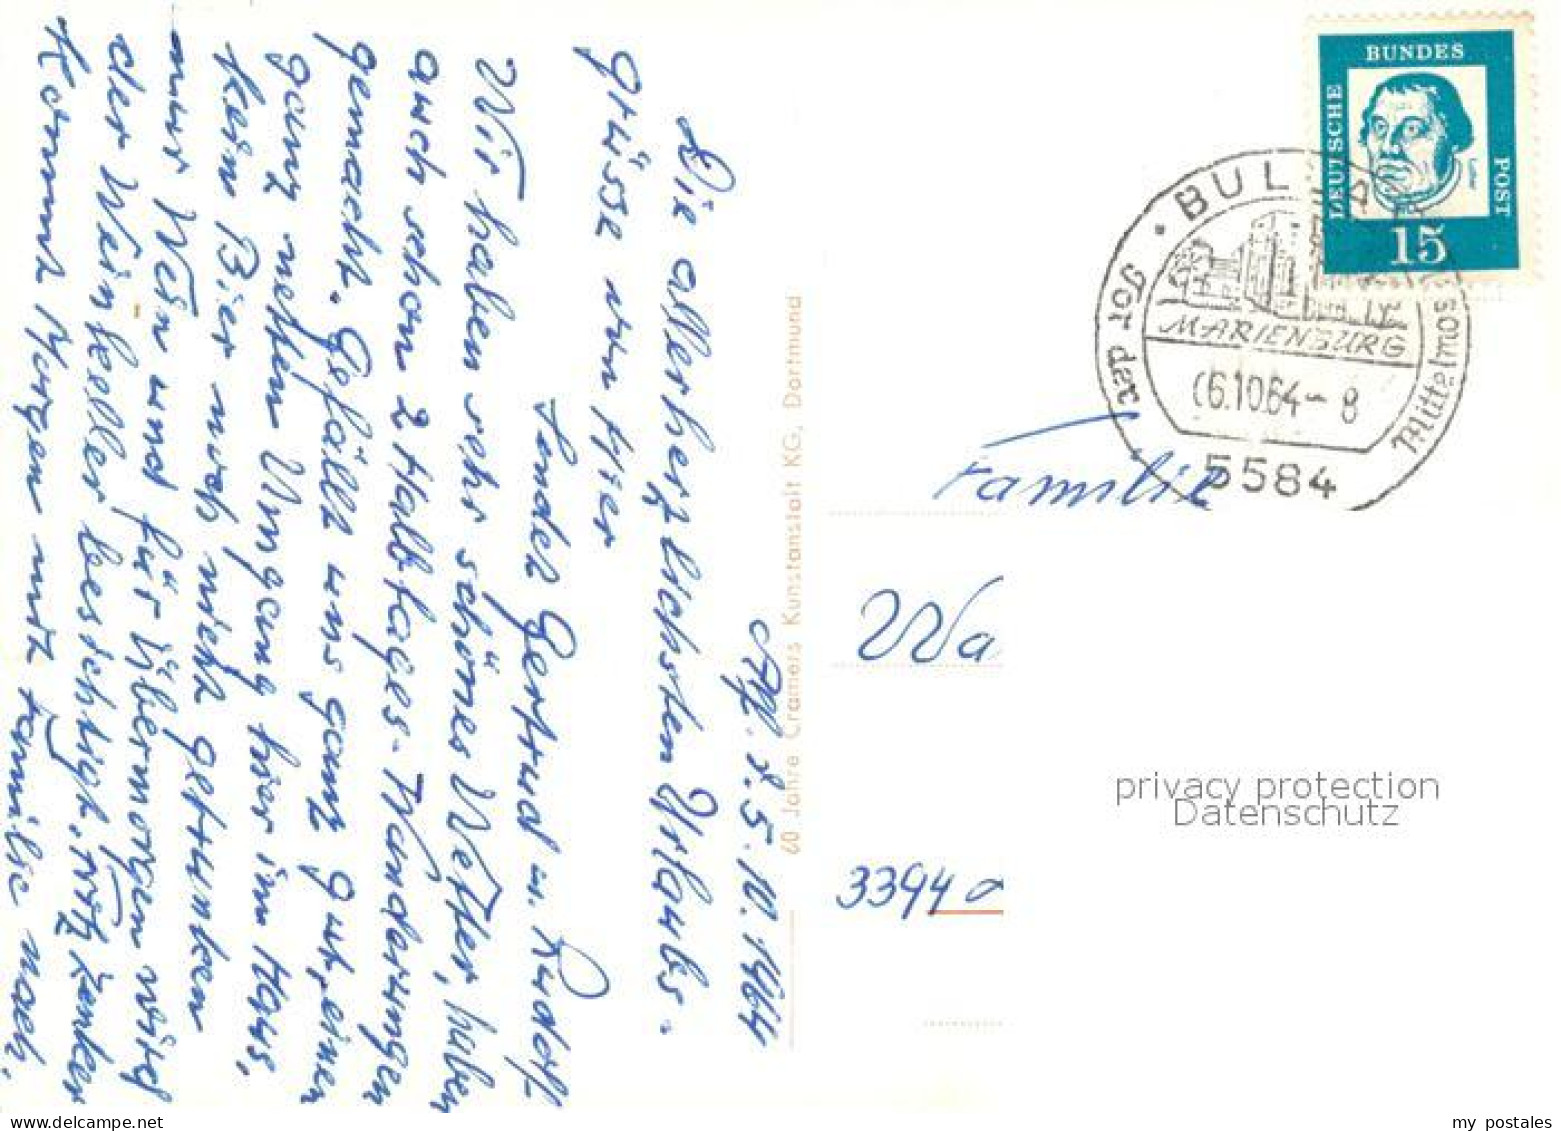 Alf. d. 5.10.1964
Die allerherzlichsten Urlaubs-
grüsse von Hier
senden Gertrud u. Rudolf
Wir haben sehr schönes Wetter, haben
auch schon 2 Halbtages-Wanderungen
gemacht. Gefällt uns ganz gut, einen
ganz netten Umgang hier im Haus,
kein Bier noch nicht getrunken
nur Wein und für übermorgen wird
der Weinkeller besichtigt. Fritz Zenker
kommt Morgen mit Familie nach.
60 Jahre Cramers Kunstanstalt KG, Dortmund
DEUTSCHE
BUNDES
POST
Luther
15
BULLAY
Tor der
Mittelmosel
MARIENBURG
6.10.64 - 8
5584
Familie
Wa
3394
privacy protection
Datenschutz
my postales
www.delcampe.net